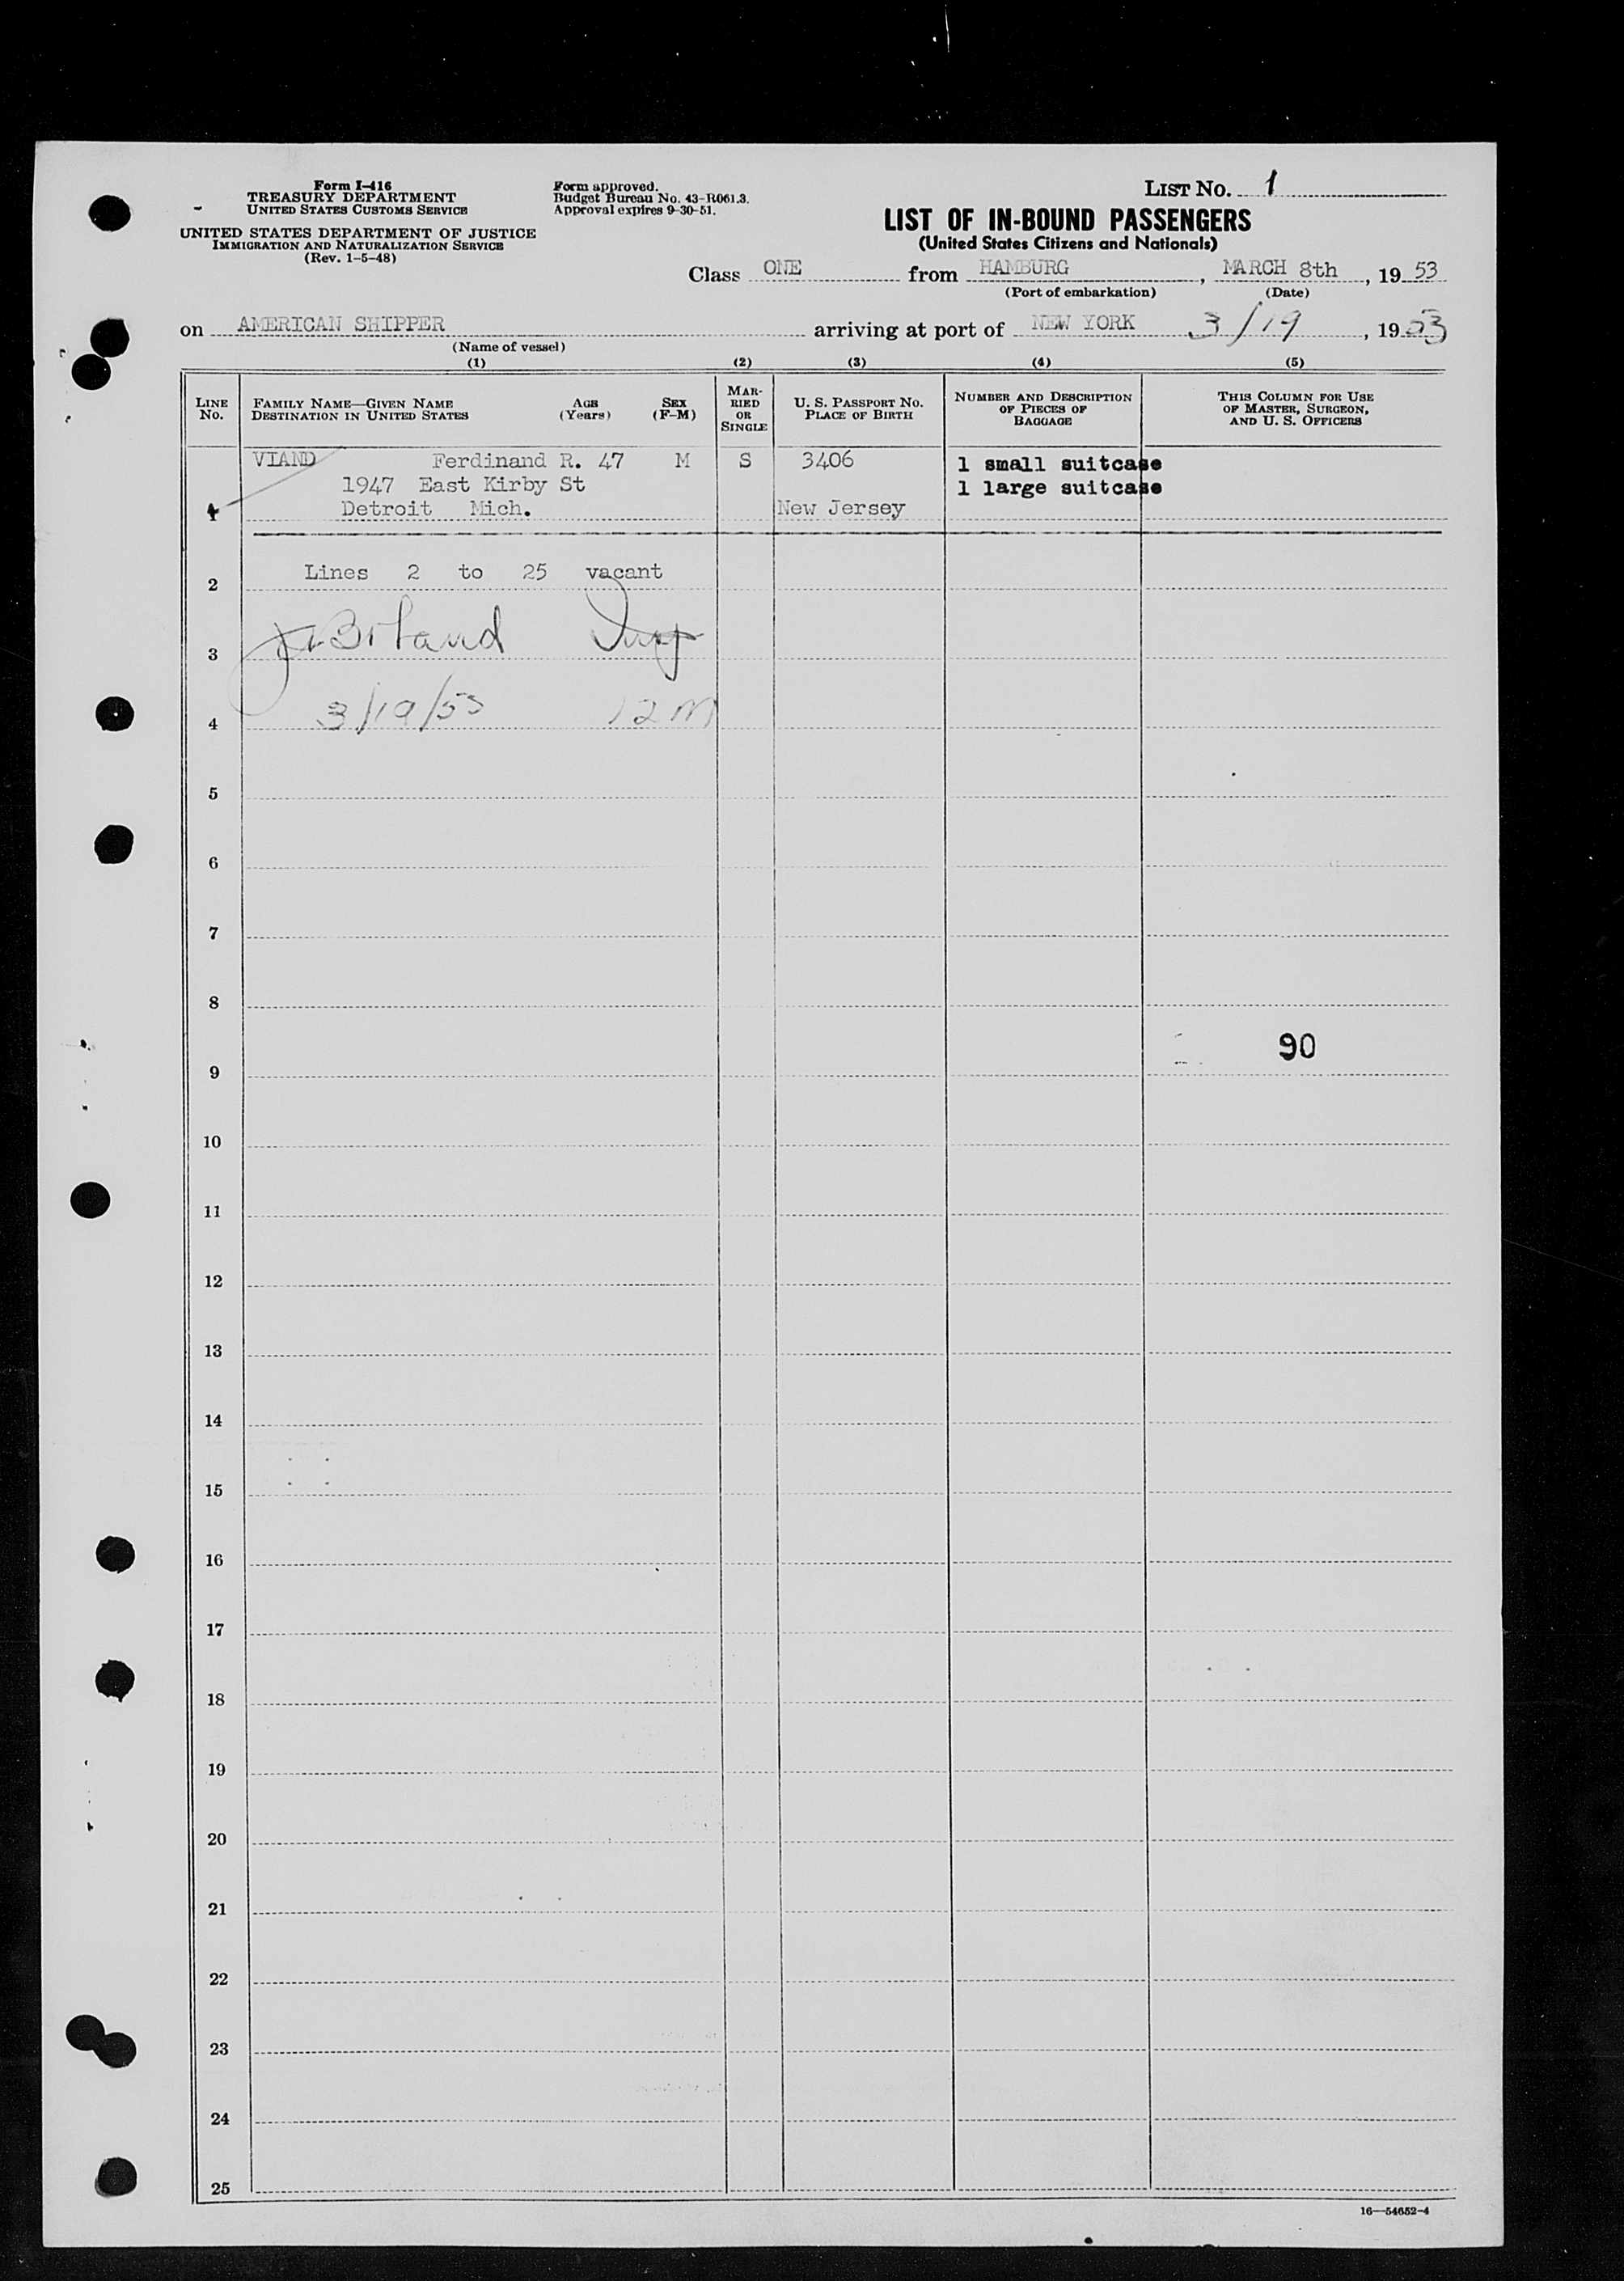 Form I-416
TREASURY DEPARTMENT
UNITED STATES CUSTOMS SERVICE
UNITED STATES DEPARTMENT OF JUSTICE
IMMIGRATION AND NATURALIZATION SERVICE
(Rev. 1-5-48)
Form approved.
Budget Bureau No. 43-R061.3.
Approval expires 9-30-51.
LIST NO. 1
LIST OF IN-BOUND PASSENGERS
(United States Citizens and Nationals)
Class ONE from HAMBURG, MARCH 8th, 1953
(Port of embarkation) (Date)
on AMERICAN SHIPPER arriving at port of NEW YORK 3/19, 1953
(Name of vessel)
(1) (2) (3) (4) (5)
LINE NO. FAMILY NAME—GIVEN NAME DESTINATION IN UNITED STATES AGE (Years) SEX (F-M) MARRIED OR SINGLE U. S. PASSPORT NO. PLACE OF BIRTH NUMBER AND DESCRIPTION OF PIECES OF BAGGAGE THIS COLUMN FOR USE OF MASTER, SURGEON, AND U. S. OFFICERS
VIAND Ferdinand R. 47 M S 3406 1 small suitcase
1947 East Kirby St 1 large suitcase
1 Detroit Mich. New Jersey
2 Lines 2 to 25 vacant
3
4 3/19/53 12 M
5
6
7
8
90
9
10
11
12
13
14
15
16
17
18
19
20
21
22
23
24
25
16—54652-4